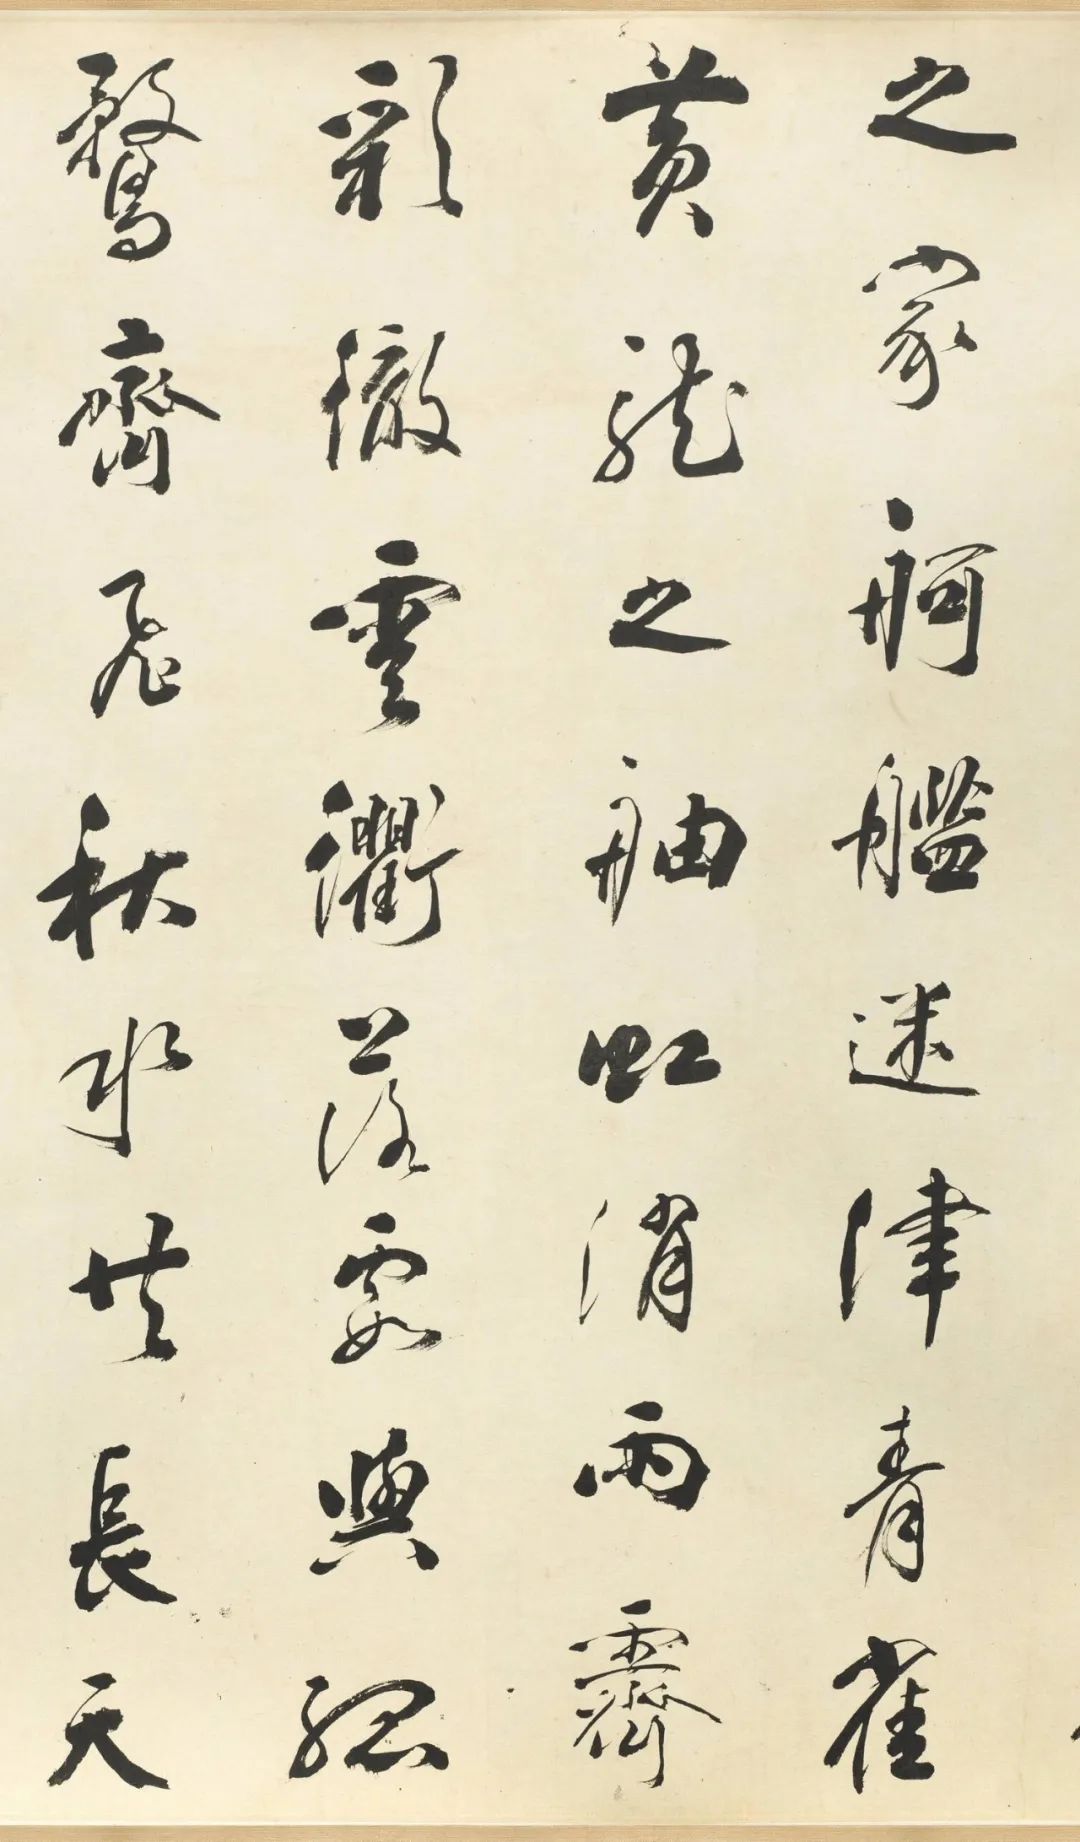 之家舸艦迷津青雀
黃龍之舳虹消雨霽
彩徹雲衢落霞與孤
鶩齊飛秋水共長天